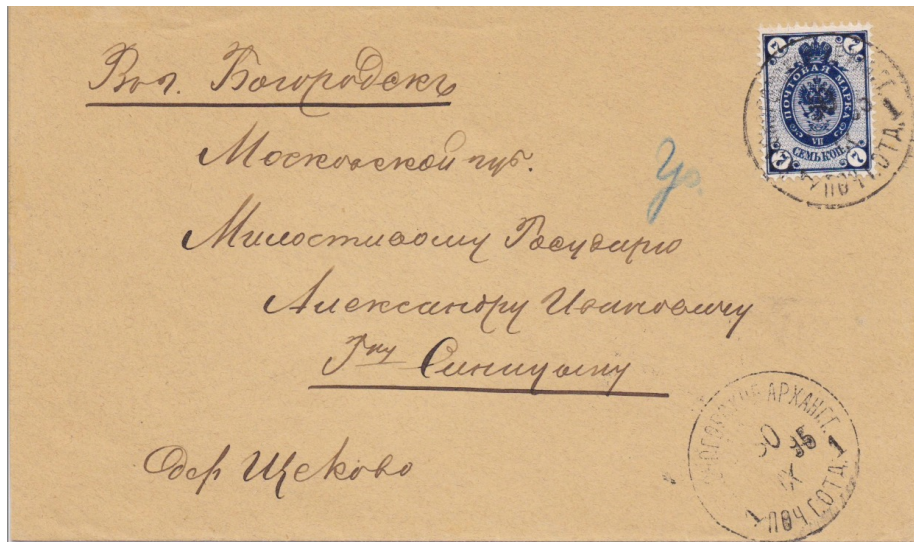 Въ г. Богородскъ
Московской губ.
Милостивому Государю
Александру Ивановичу
Гну Синицыну
Одер Щеково
7 7
ПОЧТОВАЯ МАРКА
VII
СЕМЬ КОП.
7 7
1 ПОЧ. Т. ОТД. 1
АРХАНГ.
30 95
IX
1 ПОЧ. Т. ОТД. 1